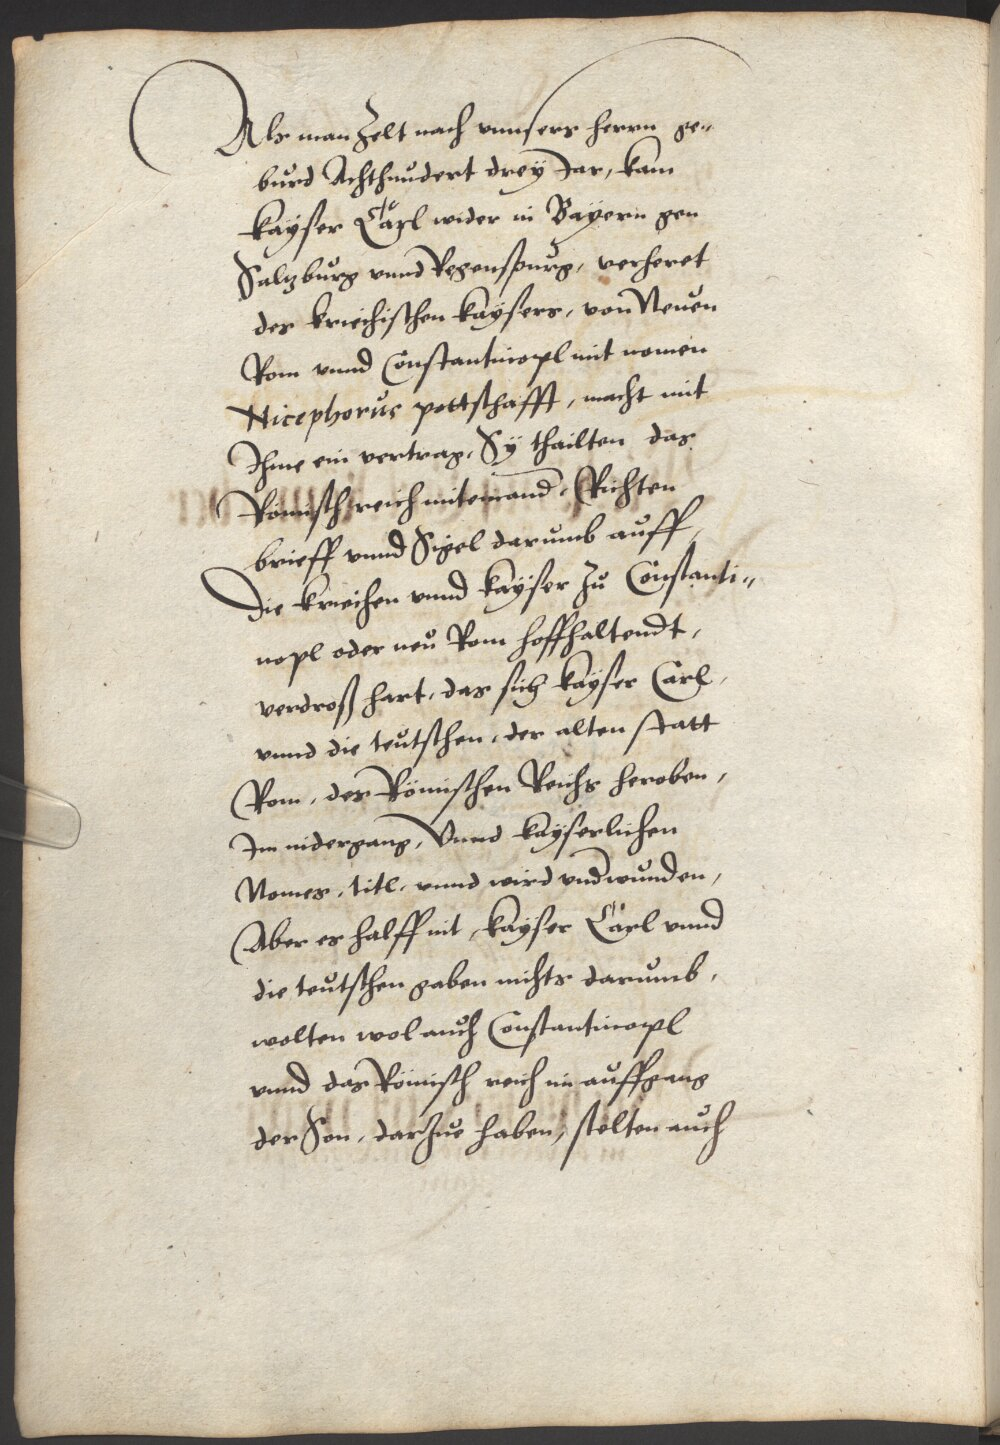 Als man zelt nach unnsers herrn ge=
burd Achthundert drey Jar, kam
kayser Carl wider in Bayern gen
Saltzburg unnd Regenspurg, verheret
des kriechischen kaysers, von Neuen
Rom unnd Constantinopl mit nomen
Nicephorus pottschafft, macht mit
Ihme ein vertrag, Sy thailten das
Römisch reich miteinand, Richten
brieff unnd Sigel darumb auff,
Die kriechen unnd kayser zu Constanti=
nopl oder neu Rom hoffhaltendt,
verdroß hart, das sich kayser Carl,
unnd die teutschen, der alten statt
Rom, des Römischen Reichs heroben,
Im nidergang, Unnd kayserlichen
Nomes, titl, unnd wird undwunden,
Aber es halff nit, kayser Carl unnd
die teutschen gaben nichts darumb,
wolten wol auch Constantinopl
unnd das Römisch reich im auffgang
der Son, darzue haben, stelten auch